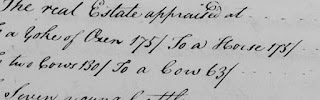 The real Estate appraised at
a Yoke of Oxen 175/ To a House 175/
two Cows 130/ To a Cow 63/
Seven young Cattle